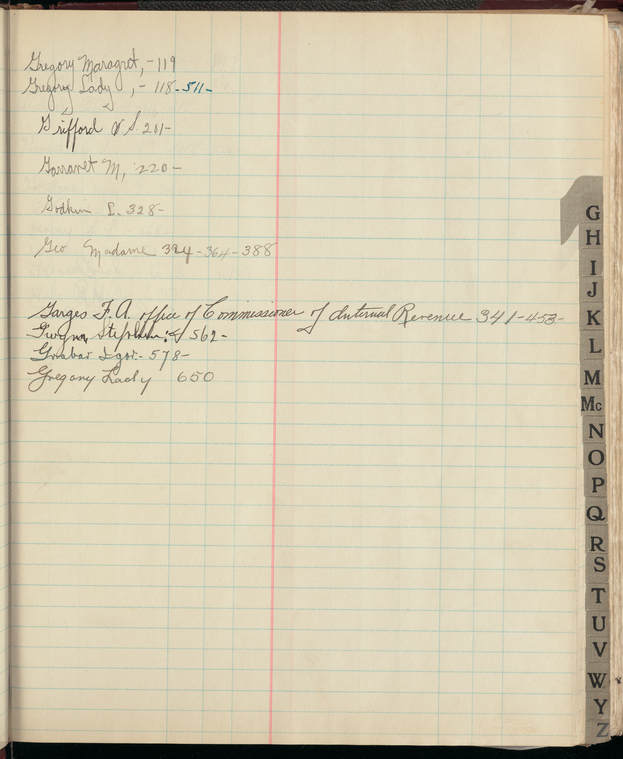 Gregory Maragret, - 119
Gregory Lady , - 118-511-
Grifford V. S. 211-
Garranet M, 220-
Godkin L. 328-
Geo Madame 324-364-388
Garges F. A. office of Commissioner of Internal Revenue 341-453-
Gwynn Stephen 562-
Grabar Igor- 578-
Gregory Lady 650
G
H
I
J
K
L
M
Mc
N
O
P
Q
R
S
T
U
V
W
Y
Z